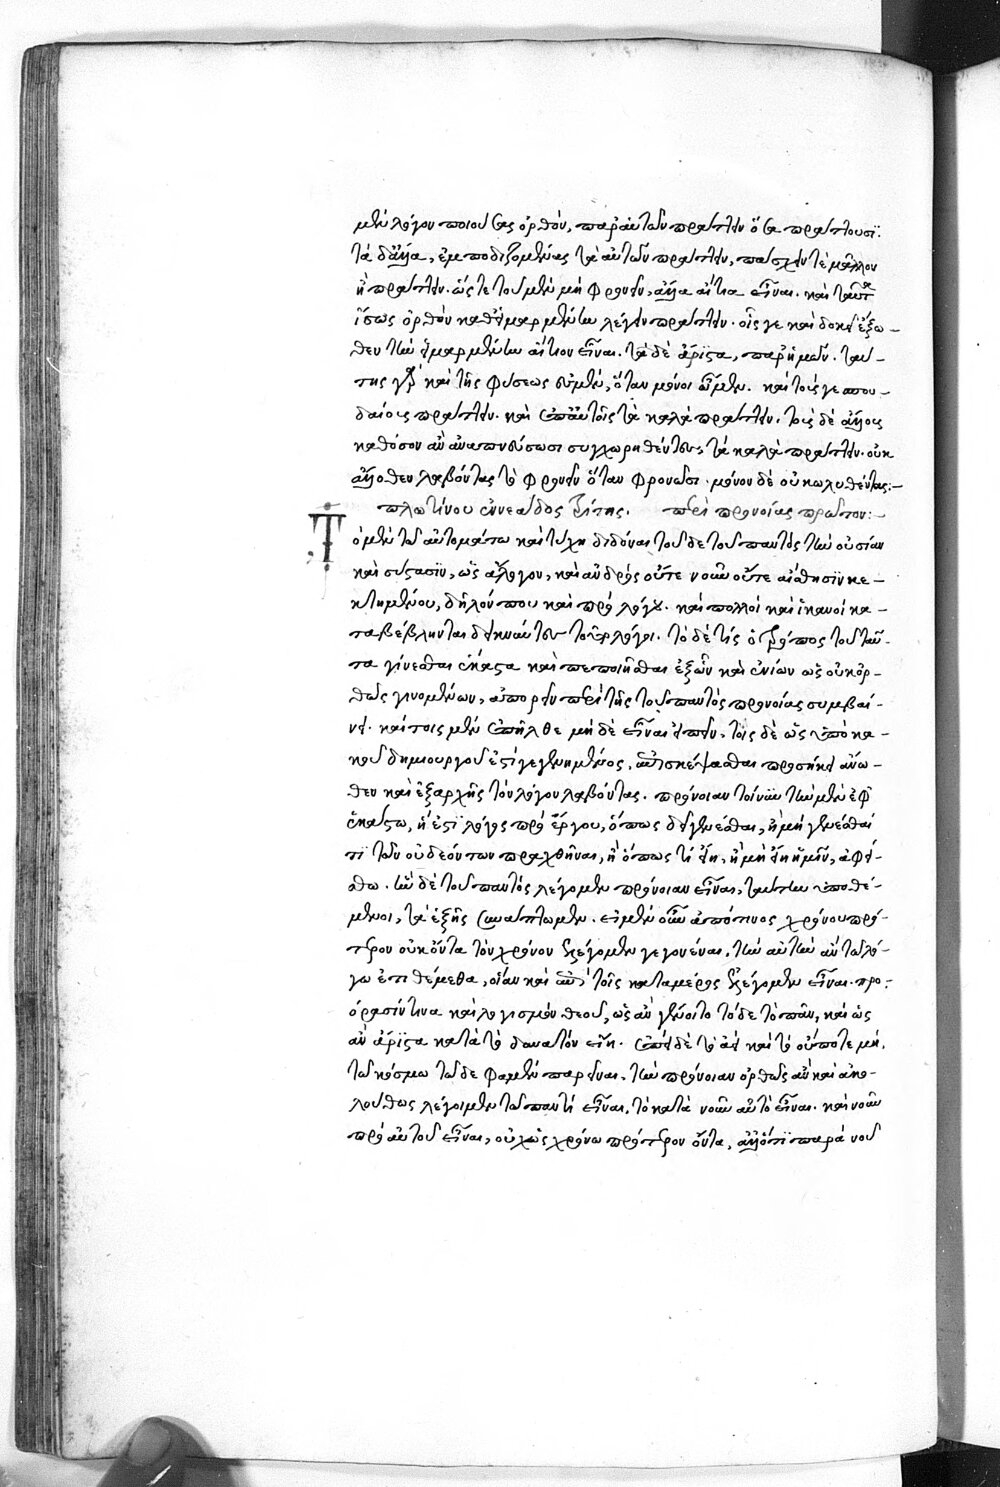 μὲν λόγον ποιούσας ὀρθόν, παρ' αὐτῶν πράττειν ὅσα πράττουσι·
τὰ δ' ἄλλα, ἐμποδιζομένας τὰ αὐτῶν πράττειν, πάσχειν τὲ μᾶλλον
ἢ πράττειν. ὥστε τοῦ μὲν μὴ φρονεῖν, ἄλλα αἴτια εἶναι. καὶ ταῦτα
ἴσως ὀρθὸν καθ' εἱμαρμένην λέγειν πράττειν. οἷς γε καὶ δοκεῖ ἔξω-
θεν τὴν εἱμαρμένην αἴτιον εἶναι. τὰ δὲ ἄριστα, παρ' ἡμῶν. ταύ-
της γὰρ καὶ τῆς φύσεως ἐσμέν, ὅταν μόνοι ὦμεν. καὶ τούς γε σπου-
δαίους πράττειν. καὶ ἐπ' αὐτοῖς τὰ καλὰ πράττειν. τοὺς δὲ ἄλλους
καθόσον ἂν ἀναπνεύσωσι συγχωρηθέντας, τὰ καλὰ πράττειν. οὐκ
ἄλλοθεν λαβόντας τὸ φρονεῖν ὅταν φρονῶσι. μόνον δὲ οὐ κωλυθέντας:-
πλωτίνου ἐννεάδος τρίτης. περὶ προνοίας πρῶτον:-
Τὸ μὲν τῶ αὐτομάτω καὶ τύχη διδόναι τοῦδε τοῦ παντὸς τὴν οὐσίαν
καὶ σύστασιν, ὡς ἄλογον, καὶ ἀνδρὸς οὔτε νοῦν οὔτε αἴσθησιν κε-
κτημένου, δῆλόν που καὶ πρὸ λόγου. καὶ πολλοὶ καὶ ἱκανοὶ κα-
ταβέβληνται δεικνύντες τοῦτο λόγοι. τὸ δὲ τίς ὁ τρόπος τοῦ ταῦ-
τα γίνεσθαι ἕκαστα καὶ πεποιῆσθαι ἐξ ὧν καὶ ἐνίων ὡς οὐκ ὀρ-
θῶς γινομένων, ἀπορεῖν περὶ τῆς τοῦ παντὸς προνοίας συμβαί-
νει. καί τοις μὲν ἐπῆλθε μὴ δὲ εἶναι εἰπεῖν, τοῖς δὲ ὡς ὑπὸ κα-
κοῦ δημιουργοῦ ἐστὶ γεγενημένος, ἐπισκέψασθαι προσήκει ἄνω-
θεν καὶ ἐξ ἀρχῆς τὸν λόγον λαβόντας. πρόνοιαν τοίνυν τὴν μὲν ἐφ'
ἑκάστω, ἥ ἐστι λόγος πρὸ ἔργου, ὅπως δεῖ γενέσθαι, ἢ μὴ γενέσθαί
τι τῶν οὐ δεόντων πραχθῆναι, ἢ ὅπως τί εἴη, ἢ μὴ εἴη ἡμῖν, ἀφεί-
σθω. ἣν δὲ τοῦ παντὸς λέγομεν πρόνοιαν εἶναι, ταύτην ὑποθέ-
μενοι, τὰ ἑξῆς συνάπτωμεν. εἰ μὲν οὖν ἀπό τινος χρόνου πρό-
τερον οὐκ ὄντα τὸν χρόνον ἐλέγομεν γεγονέναι, τὴν αὐτὴν ἂν τῶ λό-
γω ἐτιθέμεθα, οἵαν καὶ ἐπὶ τοῖς καταμέρος ἐλέγομεν εἶναι. προ-
όρασίν τινα καὶ λογισμὸν θεοῦ, ὡς ἂν γένοιτο τόδε τὸ πᾶν, καὶ ὡς
ἂν ἄριστα κατὰ τὸ δυνατὸν εἴη. ἐπεὶ δὲ τὸ ἀεὶ καὶ τὸ οὔποτε μὴ,
τῶ κόσμω τῶδε φαμὲν παρεῖναι, τὴν πρόνοιαν ὀρθῶς ἂν καὶ ἀκο-
λούθως λέγοιμεν τῶ παντὶ εἶναι, τὸ κατὰ νοῦν αὐτὸ εἶναι. καὶ νοῦν
πρὸ αὐτοῦ εἶναι, οὐχ ὡς χρόνω πρότερον ὄντα, ἀλλ' ὅτι παρὰ νοῦ